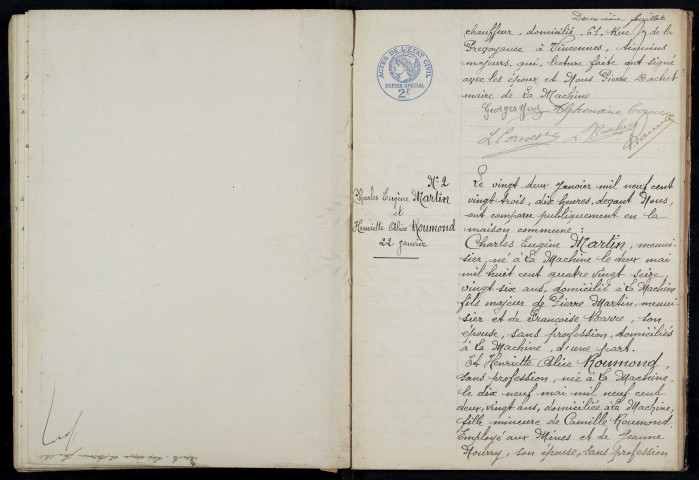 Deuxième feuillet
chauffeur, domicilié, 61, Rue de la
Prévoyance à Vincennes, témoins
majeurs, qui, lecture faite ont signé
avec les époux et Nous Pierre Dachet
maire de La Machine
Georges
ACTES DE L'ÉTAT CIVIL
PAPIER SPÉCIAL
2F
N° 2
Charles Eugène Martin
et
Henriette Alice Roumond
22 Janvier
Le vingt deux Janvier mil neuf cent
vingt trois, dix heures, devant Nous,
ont comparu publiquement en la
maison commune :
Charles Eugène Martin, menui-
sier, né à La Machine le deux mai
mil huit cent quatre vingt seize,
vingt six ans, domicilié à La Machine
fils majeur de Pierre Martin, menui-
sier et de Françoise, son
épouse, sans profession, domiciliés
à La Machine, d'une part.
Et Henriette Alice Roumond,
sans profession, née à La Machine,
le dix neuf mai mil neuf cent
deux, vingt ans, domiciliée à La Machine,
fille mineure de Camille Roumond,
Employé aux Mines et de Jeanne
Mourry, son épouse, sans profession